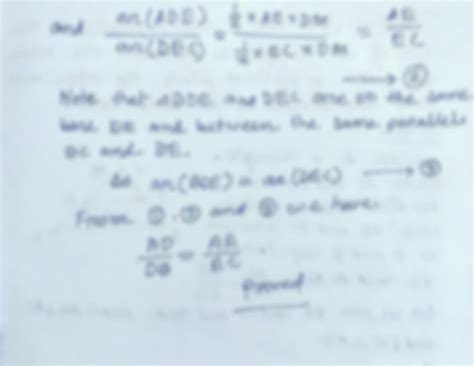 and ar(ADE) / ar(DEC) = ½ × AE × DM / ½ × EC × DM = AE / EC
→ ②
Note that BDE and DEC are on the same
base DE and between the same parallels
BC and DE.
So ar(BDE) = ar(DEC) → ③
From ①, ② and ③ we have
AD / DB = AE / EC
Proved